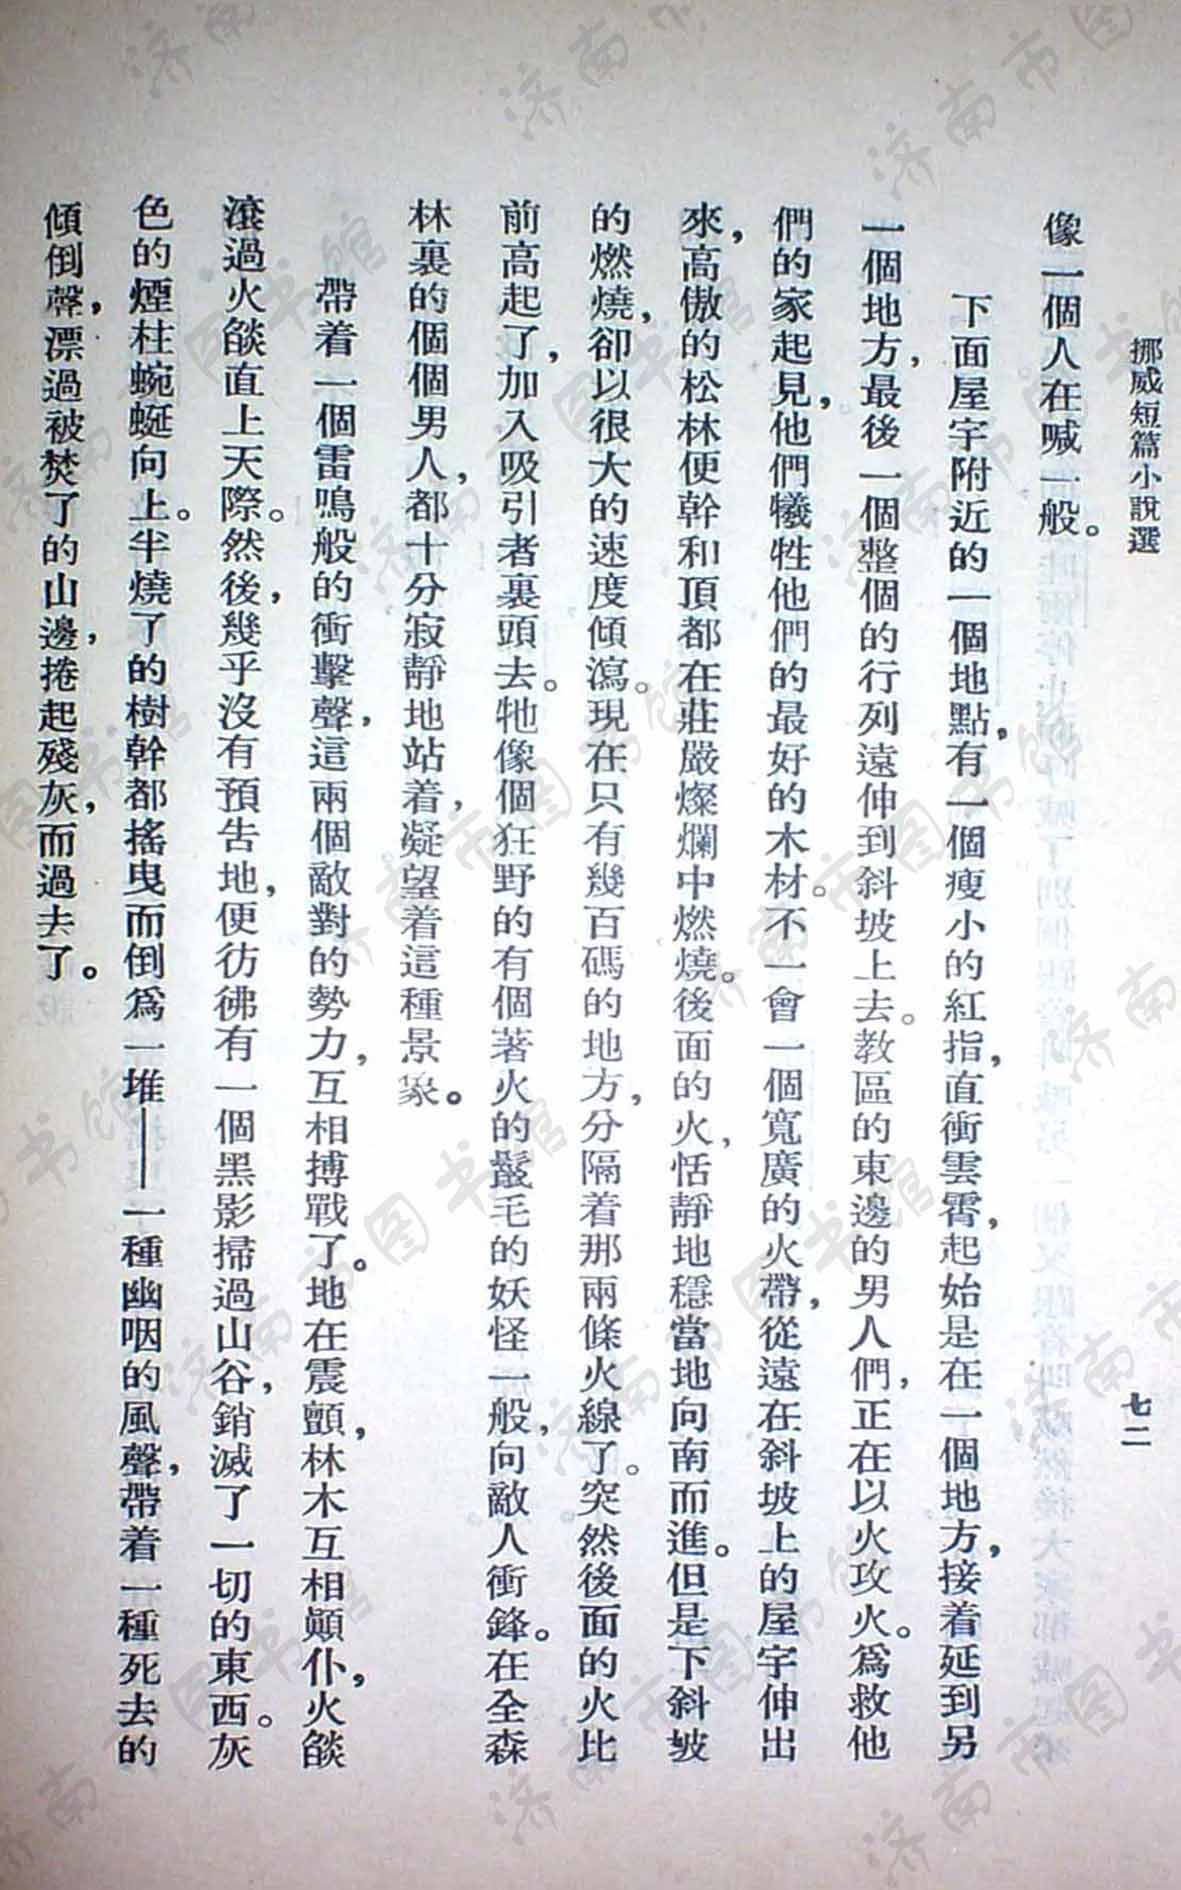 挪威短篇小說選
七二
像一個人在喊一般。
下面屋宇附近的一個地點，有一個瘦小的紅指，直衝雲霄，起始是在一個地方，接着延到另
一個地方，最後一個整個的行列遠伸到斜坡上去。教區的東邊的男人們，正在以火攻火。爲救他
們的家起見，他們犧牲他們的最好的木材。不一會一個寬廣的火帶，從遠在斜坡上的屋宇伸出
來，高傲的松林便幹和頂都在莊嚴燦爛中燃燒。後面的火，恬靜地穩當地向南而進。但是下斜坡
的燃燒，卻以很大的速度傾瀉。現在只有幾百碼的地方，分隔着那兩條火線了。突然後面的火比
前高起了，加入吸引者裏頭去。牠像個狂野的有個著火的鬣毛的妖怪一般，向敵人衝鋒。在全森
林裏的個個男人，都十分寂靜地站着，凝望着這種景象。
帶着一個雷鳴般的衝擊聲，這兩個敵對的勢力，互相搏戰了。地在震顫，林木互相顚仆，火燄
滾過火燄直上天際。然後，幾乎沒有預告地，便彷彿有一個黑影掃過山谷，銷滅了一切的東西。灰
色的煙柱蜿蜒向上。半燒了的樹幹都搖曳而倒爲一堆——一種幽咽的風聲，帶着一種死去的
傾倒聲，漂過被焚了的山邊，捲起殘灰，而過去了。
济南市图书馆